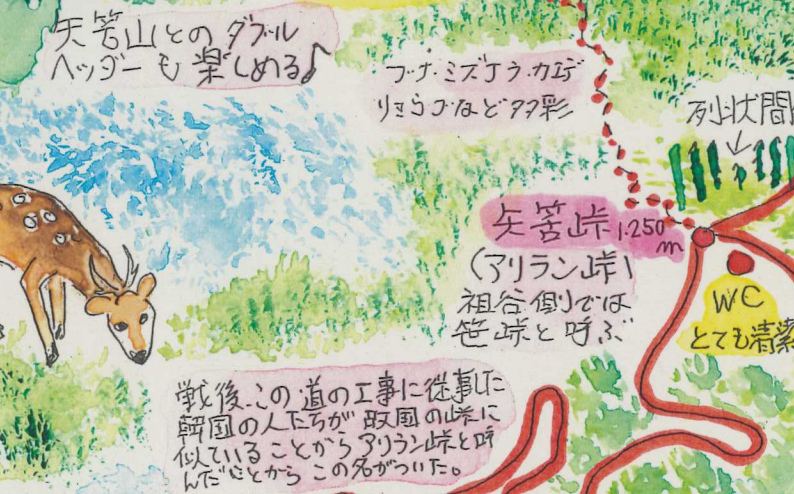 矢筈山とのダブル
ヘッダーも楽しめる♪
ブナ・ミズナラ・カエデ
リョウブなど多彩
列状間
矢筈峠 1.250m
(アリラン峠)
祖谷側では
笹峠と呼ぶ
WC
とても清潔
戦後、この道の工事に従事した
韓国の人たちが故国の峠に
似ていることからアリラン峠と呼
んだことからこの名がついた。